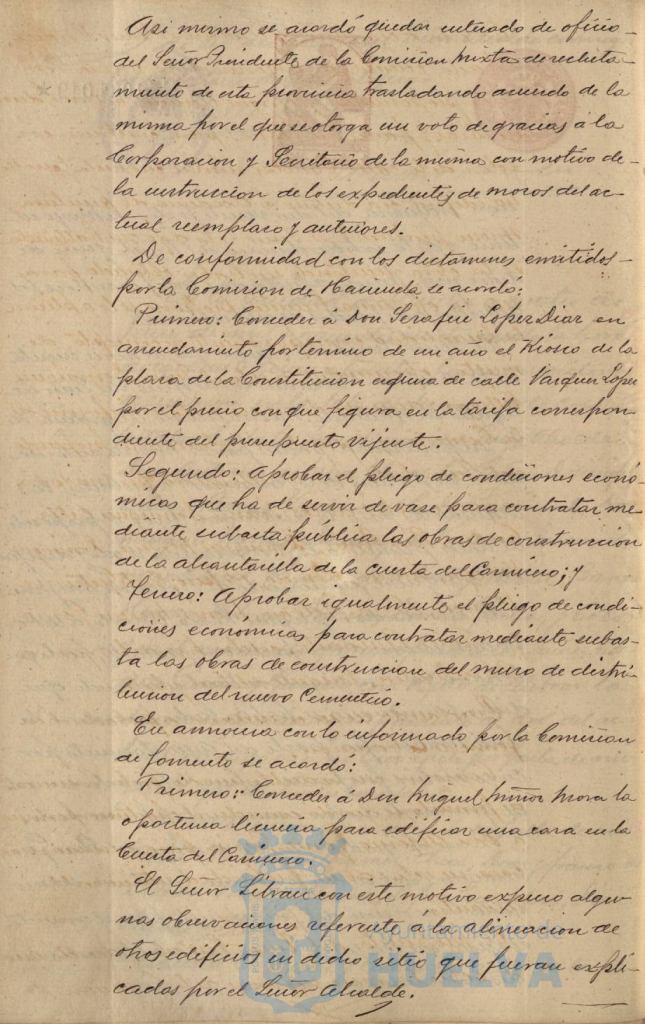 Asi mismo se acordó quedar enterado de oficio
del Señor Presidente de la Comision Mixta de recluta-
miento de esta provincia trasladando acuerdo de la
misma por el que se otorga un voto de gracias á la
Corporacion y Secretario de la misma con motivo de
la instruccion de los expedientes de mozos del ac-
tual reemplazo y anteriores.
De conformidad con los dictamenes emitidos
por la Comision de Hacienda se acordó:
Primero: Conceder á Don Serafin Lopez Diaz en
arrendamiento por termino de un año el Kiosco de la
plaza de la Constitucion esquina de calle Vazquez Lopez
por el precio con que figura en la tarifa correspon-
diente del presupuesto vijente.
Segundo: Aprobar el pliego de condiciones econó-
micas que ha de servir de vase para contratar me-
diante subasta pública las obras de construccion
de la alcantarilla de la cuesta del Carnicero; y
Tercero: Aprobar igualmente el pliego de condi-
ciones económicas para contratar mediante subas-
ta las obras de construccion del muro de distri-
bucion del nuevo Cementerio.
En armonia con lo informado por la Comision
de fomento se acordó:
Primero: Conceder á Don Miguel Muñoz Mora la
oportuna licencia para edificar una casa en la
Cuesta del Carnicero.
El Señor con este motivo expuso algu-
nas observaciones referente á la alineacion de
otros edificios en dicho sitio que fueran expli-
cados por el Señor Alcalde.
Ayuntamiento de
HUELVA